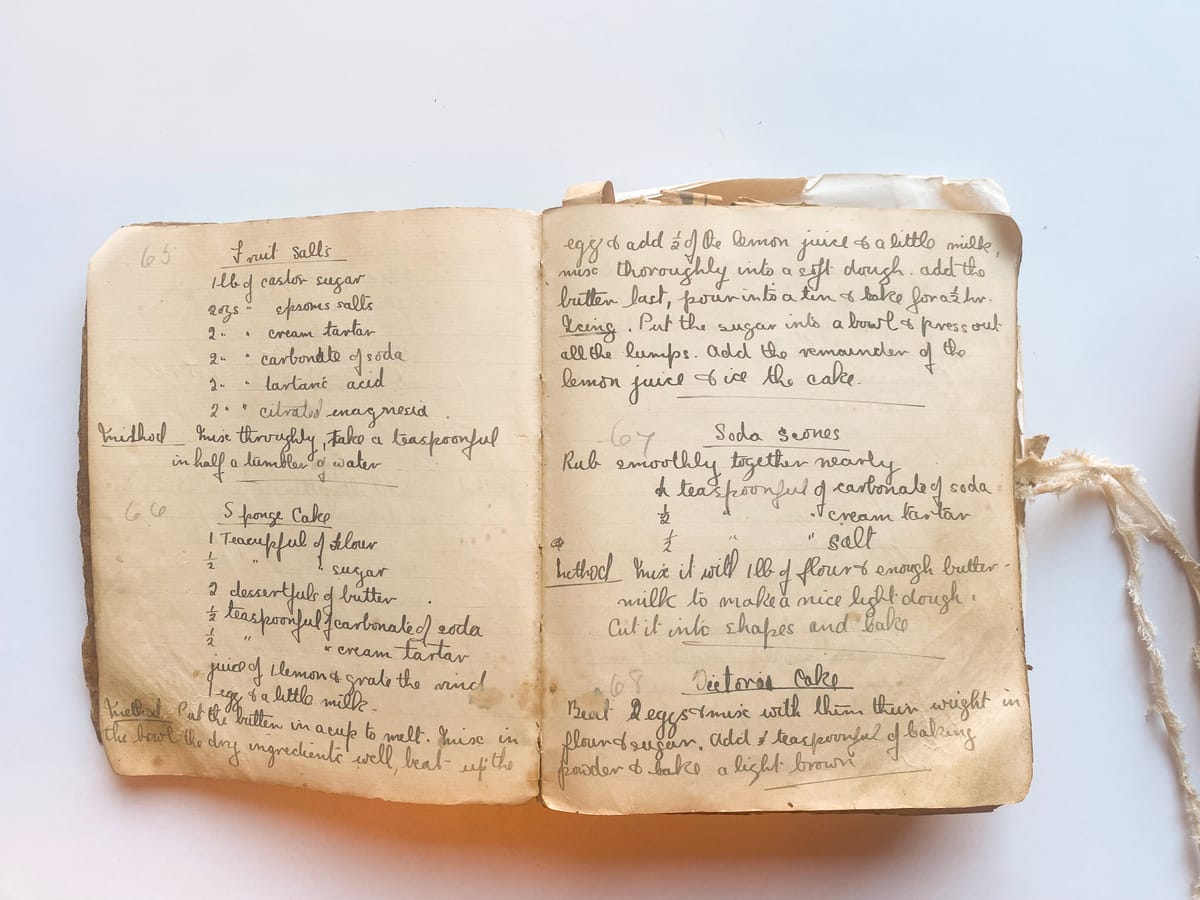 65
Fruit Salts
1 lb of castor sugar
2ozs " epsoms salts
2 " " cream tartar
2 " " carbonate of soda
2 " " tartaric acid
2 " " citrated magnesia.
Method Mix throughly, Take a teaspoonful
in half a tumbler of water
66
Sponge Cake
1 Teacupful of flour
½ " " sugar
2 dessertfuls of butter.
½ teaspoonful of carbonate of soda
½ " " cream tartar
juice of 1 lemon & grate the rind
1 egg & a little milk.
Method Put the butter in a cup to melt. Mix in
the bowl the dry ingredients well, beat up the
egg & add ½ of the lemon juice & a little milk,
mix thoroughly into a soft dough. add the
butter last, pour into a tin & bake for a ½ hr.
Icing. Put the sugar into a bowl & press out
all the lumps. Add the remainder of the
lemon juice & ice the cake.
67
Soda Scones
Rub smoothly together nearly
teaspoonful of carbonate of soda
½ " " cream tartar
½ " " salt
Method Mix it with 1 lb of flour & enough butter-
milk to make a nice light dough.
Cut it into shapes and bake
68
Victoria Cake
Beat 2 eggs & mix with them their wright in
flour & sugar. Add teaspoonful of baking
powder & bake a light brown